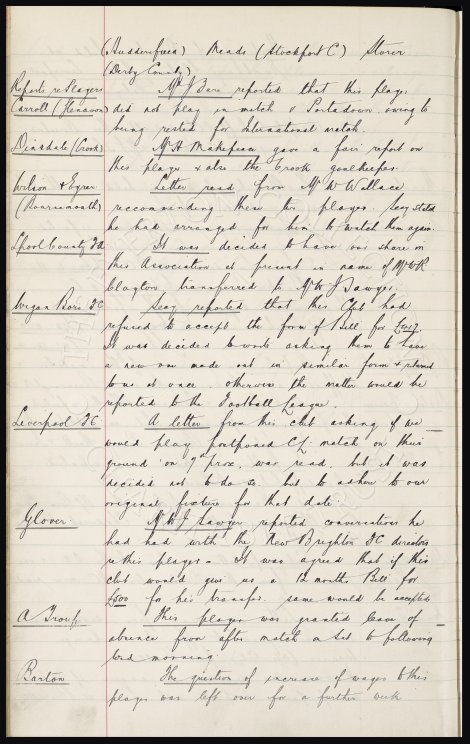 (Huddersfield) Meads (Stockport C) Storer
(Derby County)
Reports re Players Mr J Bain reported that this player
Carroll (Glenavon) did not play in match v Portadown, owing to
being rested for International match.
Dinsdale (Crook) Mr H Makepeace gave a fair report on
this player & also the Crook goalkeeper.
Wilson & Eyres Letter read from Mr W Wallace
(Bournemouth) recommending these two players. Secy stated
he had arranged for him to watch them again.
Lpool County FA It was decided to have our share in
this Association at present in name of Mr W R
Clayton transferred to Mr W J Sawyer.
Wigan Boro FC Secy reported that this Club had
refused to accept the form of Bill for
It was decided to write asking them to have
a new one made out in similar form & returned
to us at once. otherwise the matter would be
reported to the Football League.
Liverpool FC A letter from this club asking if we
would play postponed CL. match on their
ground on 9th prox. was read, but it was
decided not to do so but to adhere to our
original fixture for that date.
Glover. Mr W J Sawyer reported conversations he
had had with the New Brighton FC directors
re this player. It was agreed that if this
club would give us a 12 months Bill for
£500 for his transfer. same would be accepted
A Troup. This player was granted leave of
absence from after match on Sat to following
Wed morning.
Barton The question of increase of wages to this
player was left over for a further week